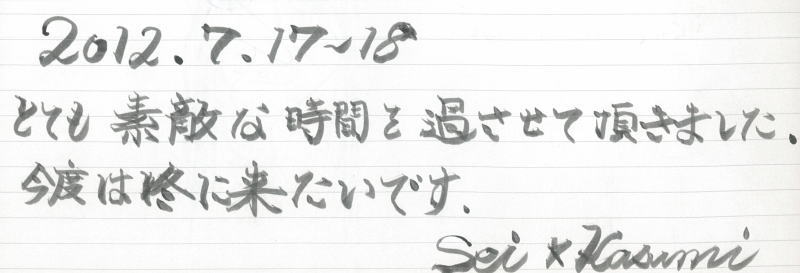 2012.7.17~18
とても素敵な時間を過させて頂きました.
今度は冬に来たいです.
Sei × Kasumi